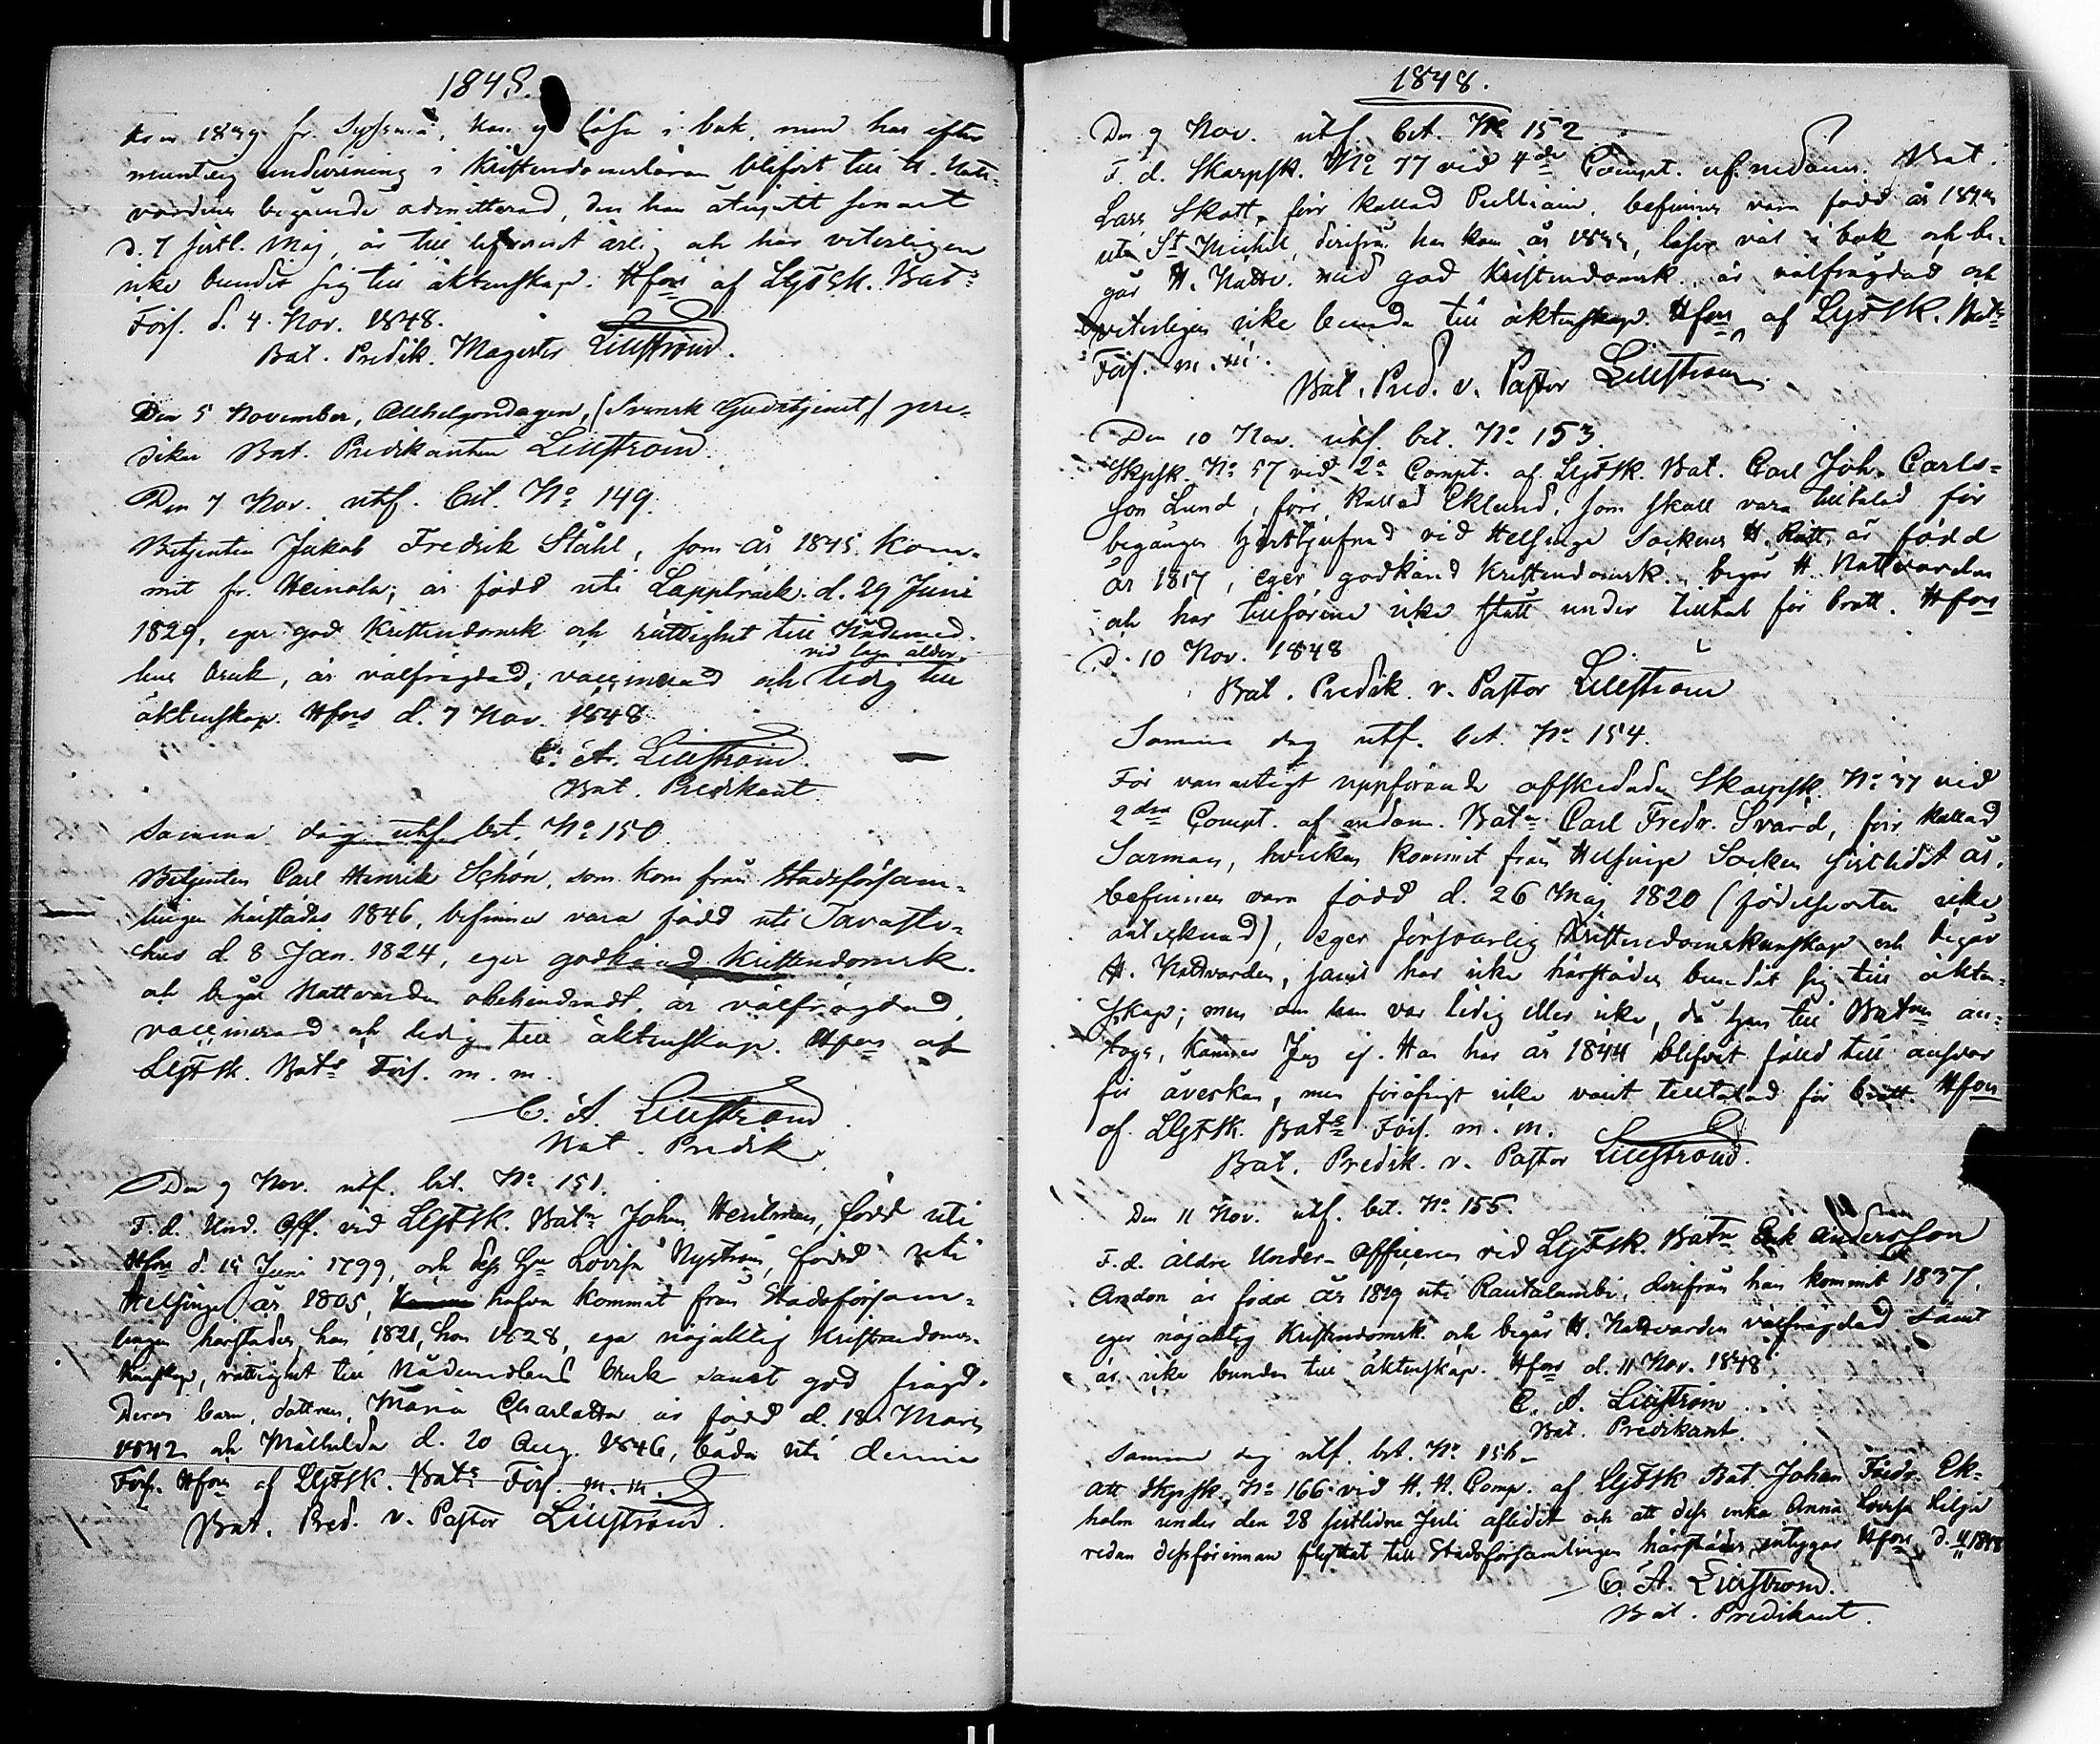 1848.
kom 1839 fr. Sysmä, kan ej läsa i bok, men har efter
muntlig undervisning i Kristendomsläran blifvit till H. Natt-
vardens begående admitterad, den han åtnjutit senast
d. 7 sistl. Maj, är till lefvernet ärlig och har veterligen
icke bundit sig till äktenskap. Hfors af LGFSk. Bat:s
Förs. d. 4 Nov. 1848.
Bat. Predik. Magister Lillström.
Den 5 November, Allhelgondagen, (Svensk Gudstjenst) pre-
dikar Bat. Predikanten Lillström.
Den 7 Nov. utf. bet. No 149.
Betjenten Jakob Fredrik Ståhl, som år 1845 kom-
mit fr. Heinola, är född uti Lappträsk d. 29 Juni
1829, eger god Kristendomsk. och rättighet till Nådemed-
vid laga ålder
lens bruk, är välfrägdad, vaccinerad och ledig till
äktenskap. Hfors d. 7 Nov. 1848.
C. A. Lillström.
Bat. Predikant.
Samma dag utf. bet. No 150.
Betjenten Carl Henrik Schön, som kom från Stadsförsam-
lingen härstädes 1846, befinnes vara född uti Tavaste-
hus d. 8 Jan. 1824, eger godkänd Kristendomsk.
och begår Nattvarden obehindradt, är välfrägdad,
vaccinerad och ledig till äktenskap. Hfors af
LGFSk. Bat:s Förs. m. m.
C. A. Lillström.
Bat. Predik.
Den 9 Nov. utf. bet. No 151.
F. d. Und. Off. vid LGFSk. Bat:n Johan, född uti
Hfors d. 15 Juni 1799, och dess Hu Lovisa Nyström, född uti
Helsinge år 1805, hafva kommit från Stadsförsam-
lingen härstädes, han 1821, hon 1828, ega nöjaktig Kristendoms-
kunskap, rättighet till Nådemedlens bruk samt god frägd.
Deras barn, döttrar, Maria Charlotta är född d. 18 Mars
1842 och Mathilda d. 20 Aug. 1846, båda uti denna
Förs. Hfors af LGFSk. Bat:s Förs. m. m.
Bat. Pred. v. Pastor Lillström.
1848.
Den 9 Nov. utf. bet. No 152
F. d. Skarpsk. No 77 vid 4de Compt. af nedann. Bat.
Lars Skott, förr kallad, befinnes vara född år
uti St Michel, derifrån han kom år, läser väl i bok och be-
går H. Nattv. med god Kristendomsk. är välfrägdad och
veterligen icke bunden till äktenskap. Hfors af LGFSk. Bat:s
Förs. m. m.
Bat. Pred. v. Pastor Lillström.
Den 10 Nov. utf. bet. No 153.
Skpsk. No 57 vid 2a Compt. af LGFSk. Bat. Carl Joh. Carls-
son Lund, förr kallad Eklund, som skall vara tilltalad för
begången vid Helsinge Sockens H. Rätt, är född
år 1817, eger godkänd Kristendomsk., begår H. Nattvarden
och har tillförene icke stått under tilltal för brott. Hfors
d. 10 Nov. 1848
Bat. Predik. v. Pastor Lillström
Samma dag utf. bet. No 154.
För vanartigt uppförande afskedade Skarpsk. No 37 vid
2dra Compt. af nedann. Bat:n Carl Fredr. Svärd, förr kallad
Sarman, hvilken kommit från Helsinge Socken sistlidet år,
befinnes vara född d. 26 Maj 1820 (födelseorten icke
antecknad), eger försvarlig Kristendomskunskap och begår
H. Nattvarden, samt har icke härstädes bundit sig till äkten-
skap; men om han var ledig eller icke, då han till Bat:n an-
togs, känner jag ej. Han har år 1844 blifvit fälld till ansvar
för åverkan, men föröfrigt icke varit tilltalad för brott. Hfors
af LGFSk. Bat:s Förs. m. m.
Bat. Predik. v. Pastor Lillström.
Den 11 Nov. utf. bet. No 155.
F. d. äldre Under-Officeren vid LGFSk. Bat:n Erik Andersson
är född år 1819 uti Rautalambi, derifrån han kommit 1837,
eger nöjaktig Kristendomsk. och begår H. Nattvarden välfrägdad samt
är icke bunden till äktenskap. Hfors d. 11 Nov. 1848
C. A. Lillström.
Bat. Predikant.
Samma dag utf. bet. No 156.
Att Skpsk. No 166 vid H. H. Comp. af LGFSk Bat. Johan Fredr. Ek-
holm under den 28 sistlidne Juli aflidit och att dess enka Anna Lovisa Lilja
redan dessförinnan flyttat till Stadsförsamlingen härstädes, intygar Hfors d. 11/11 1848
C. A. Lillström.
Bat. Predikant.